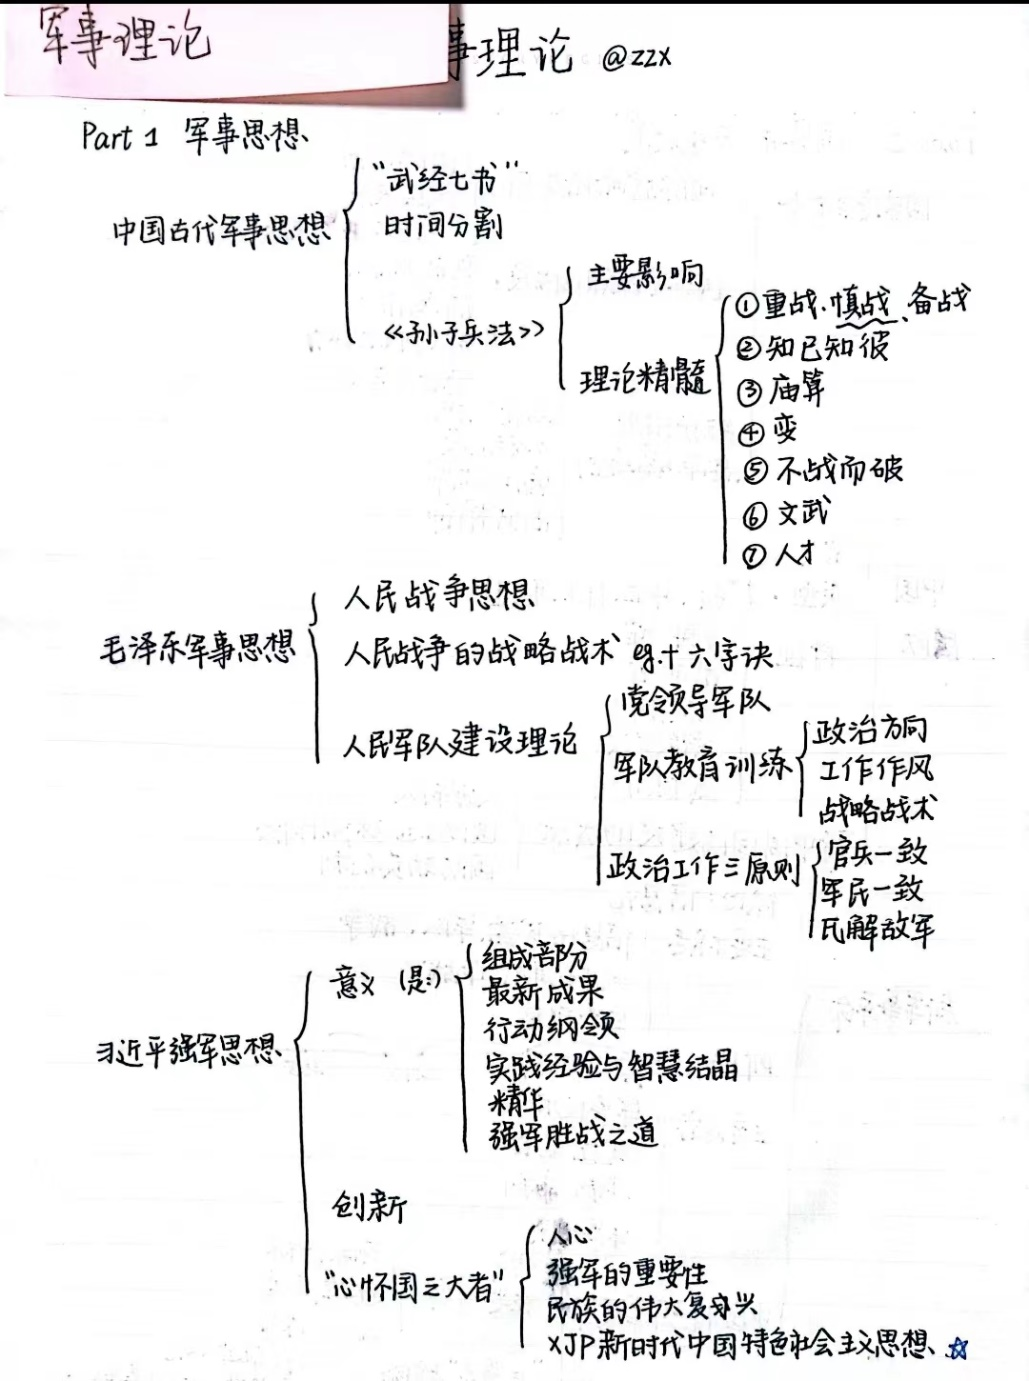 军事理论
事理论 @zzx
Part 1 军事思想
中国古代军事思想
"武经七书"
时间分割
《孙子兵法》
主要影响
理论精髓
①重战、慎战、备战
②知己知彼
③庙算
④变
⑤不战而破
⑥文武
⑦人才
毛泽东军事思想
人民战争思想
人民战争的战略战术 eg.十六字诀
人民军队建设理论
党领导军队
军队教育训练
政治方向
工作作风
战略战术
政治工作三原则
官兵一致
军民一致
瓦解敌军
习近平强军思想
意义 (是:)
组成部分
最新成果
行动纲领
实践经验与智慧结晶
精华
强军胜战之道
创新
"心怀国之大者"
人心
强军的重要性
民族的伟大复兴
XJP新时代中国特色社会主义思想